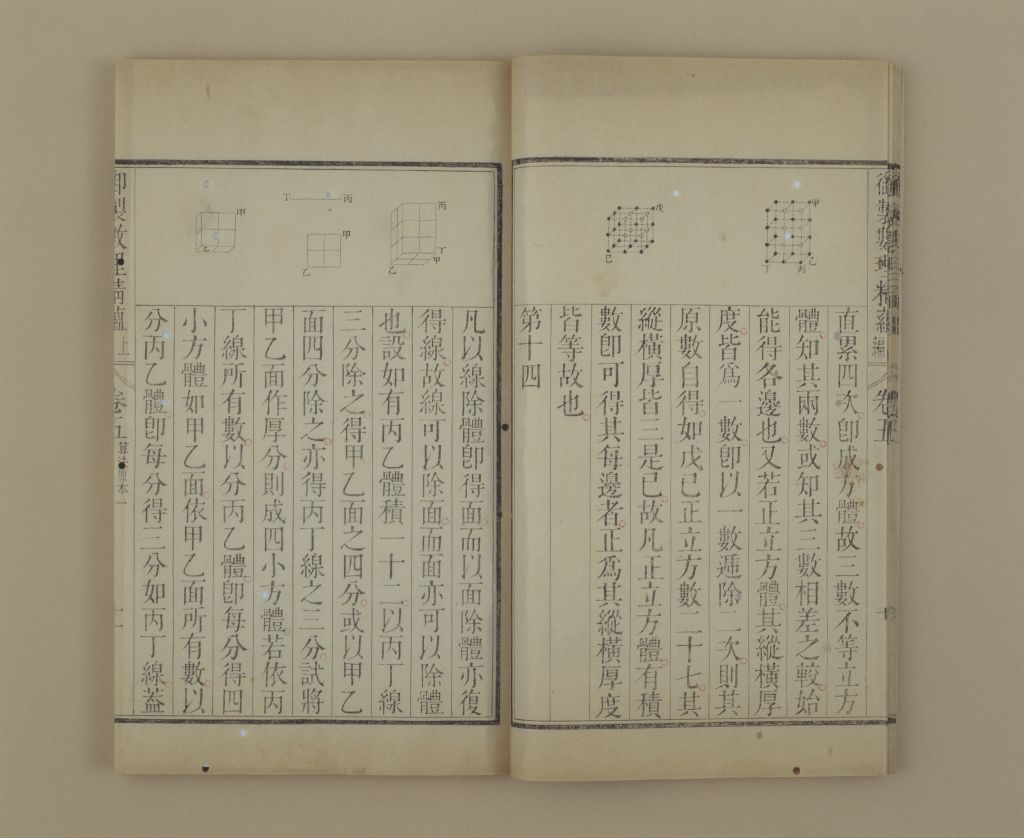 御製數理精蘊
編
卷五
甲
乙
丙
丁
戊
己
直累四次即成方體故三數不等立方
體知其兩數或知其三數相差之較始
能得各邊也又若正立方體其縱橫厚
度皆為一數即以一數遞除二次則其
原數自得如戊己正立方數二十七其
縱橫厚皆三是已故凡正立方體有積
數即可得其每邊者正為其縱橫厚度
皆等故也
第十四
丙
丁
甲
乙
丁
丙
甲
乙
甲
乙
凡以線除體即得面而以面除體亦復
得線故線可以除面面亦可以除體
也設如有丙乙體積一十二以丙丁線
三分除之得甲乙面之四分或以甲乙
面四分除之亦得丙丁線之三分試將
甲乙面作厚分則成四小方體若依丙
丁線所有數以分丙乙體即每分得四
小方體如甲乙面依甲乙面所有數以
分丙乙體即每分得三分如丙丁線蓋
御製數理精蘊
上
卷五
算法原本一